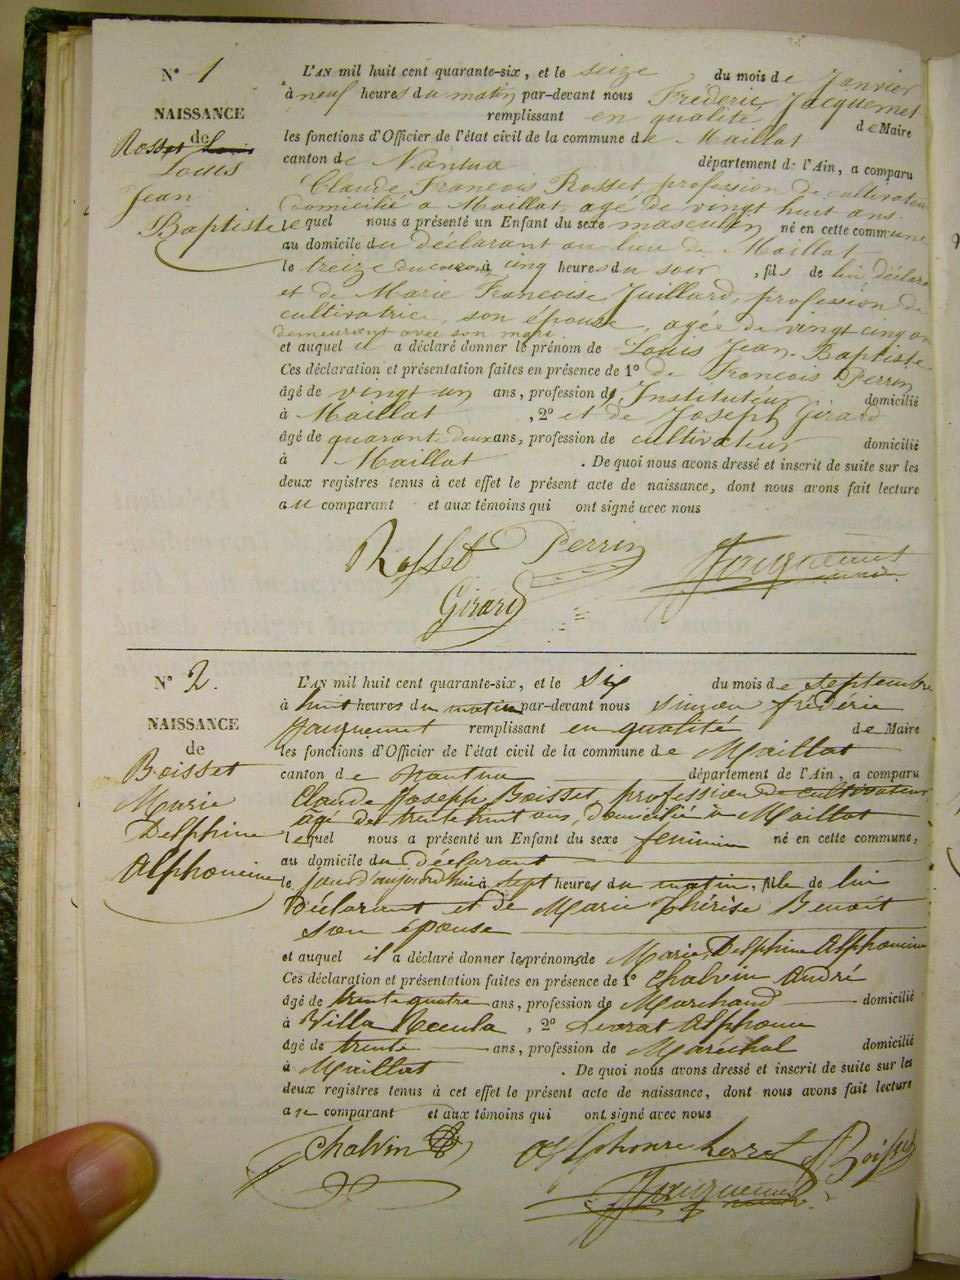 N° 1
NAISSANCE
de
Rosset Louis
Louis
Jean
Baptiste
L'AN mil huit cent quarante-six, et le seize du mois de Janvier
à neuf heures du matin par-devant nous Frédéric Jacquemet
remplissant en qualité de Maire
les fonctions d'Officier de l'état civil de la commune de Maillat
canton de Nantua département de l'Ain, a comparu
Claude François Rosset, profession de cultivateur
domicilié à Maillat, agé de vingt huit ans
lequel nous a présenté un Enfant du sexe masculin né en cette commune,
au domicile du déclarant au lieu de Maillat
le treize du courant à cinq heures du soir, fils de lui déclarant
et de Marie Françoise Juillard, profession de
cultivatrice, son épouse, agée de vingt cinq ans
demeurant avec son mari
et auquel il a déclaré donner le prénom de Louis Jean-Baptiste
Ces déclaration et présentation faites en présence de 1° de François Perrin
âgé de vingt un ans, profession d'Instituteur domicilié
à Maillat, 2° et de Joseph Girard
âgé de quarante deux ans, profession de cultivateur domicilié
à Maillat. De quoi nous avons dressé et inscrit de suite sur les
deux registres tenus à cet effet le présent acte de naissance, dont nous avons fait lecture
au comparant et aux témoins qui ont signé avec nous
Rosset Perrin Jacquemet
Girard
N° 2.
NAISSANCE
de
Boisset
Marie
Delphine
Alphonsine
L'AN mil huit cent quarante-six, et le six du mois de septembre
à huit heures du matin par-devant nous frédéric
Jacquemet remplissant en qualité de Maire
les fonctions d'Officier de l'état civil de la commune de Maillat
canton de Nantua département de l'Ain, a comparu
Claude Joseph Boisset profession de cultivateur
âgé de trente huit ans, domicilié à Maillat
lequel nous a présenté un Enfant du sexe féminin né en cette commune,
au domicile du déclarant
le jour d'aujourd'hui à sept heures du matin, fille de lui
Déclarant et de Marie Thérèse Benoit
son épouse
et auquel il a déclaré donner les prénoms de Marie Delphine Alphonsine
Ces déclaration et présentation faites en présence de 1° Chalvin André
âgé de trente quatre ans, profession de Marchand domicilié
à Villa, 2° Alphonse
âgé de trente ans, profession de Maréchal domicilié
à Maillat. De quoi nous avons dressé et inscrit de suite sur les
deux registres tenus à cet effet le présent acte de naissance, dont nous avons fait lecture
au comparant et aux témoins qui ont signé avec nous
Chalvin Alphonse Boisset
Jacquemet